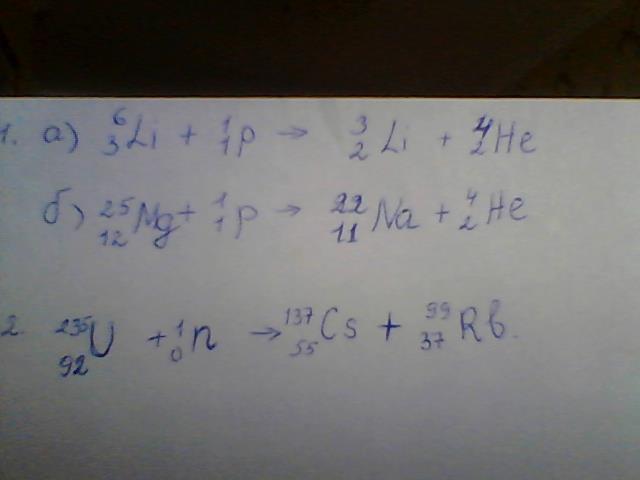 1. а) ⁶₃Li + ¹₁p → ³₂Li + ⁴₂He
б) ²⁵₁₂Mg + ¹₁p → ²²₁₁Na + ⁴₂He
2. ²³⁵₉₂U + ¹₀n → ¹³⁷₅₅Cs + ⁹⁹₃₇Rb.